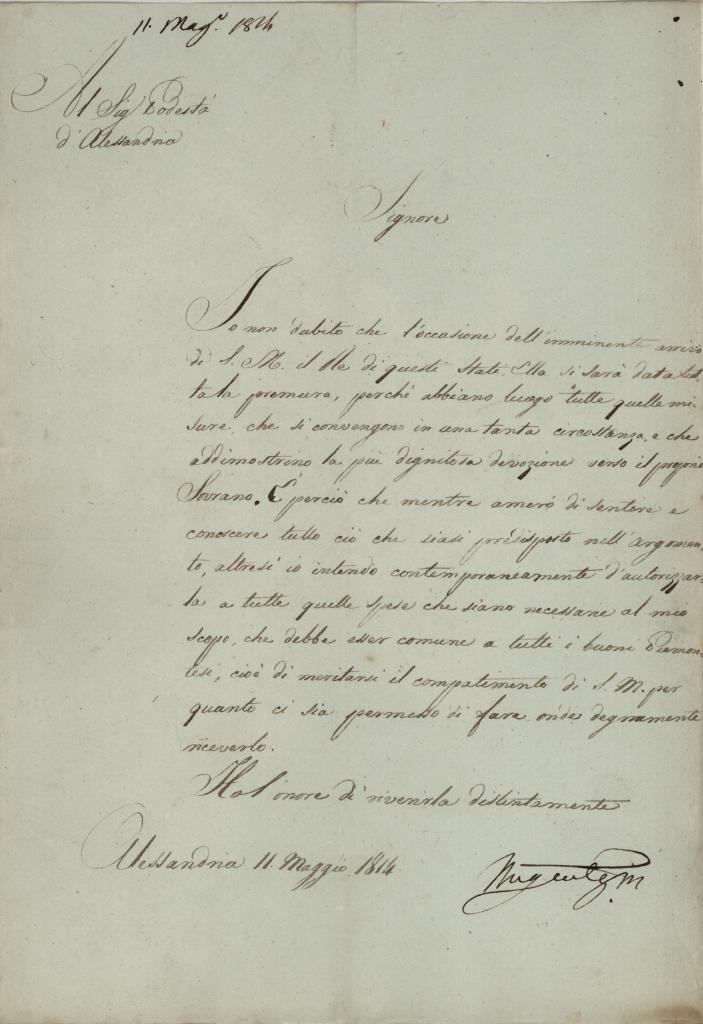 11. Magg. 1814
Al Sig Podestà
d'Alessandria
Signore
Io non dubito che l'occasione dell'imminente arrivo
di S. M. il Re di questi stati, Ella si sarà data tut-
ta la premura, perchè abbiano luogo tutte quelle mi-
sure, che si convengono in una tanta circostanza, e che
addimostrino la più dignitosa devozione verso il proprio
Sovrano. È perciò che mentre amerò di sentire e
conoscere tutto ciò che siasi predisposto nell'argomen-
to, altresì io intendo contemporaneamente d'autorizzar-
la a tutte quelle spese che siano necessarie al mio
scopo, che debbe esser comune a tutti i buoni Piemon-
tesi, cioè di meritarsi il compatimento di S. M. per
quanto ci sia permesso di fare onde degnamente
riceverlo.
Ho l'onore di riverirla distintamente
Alessandria 11. Maggio 1814